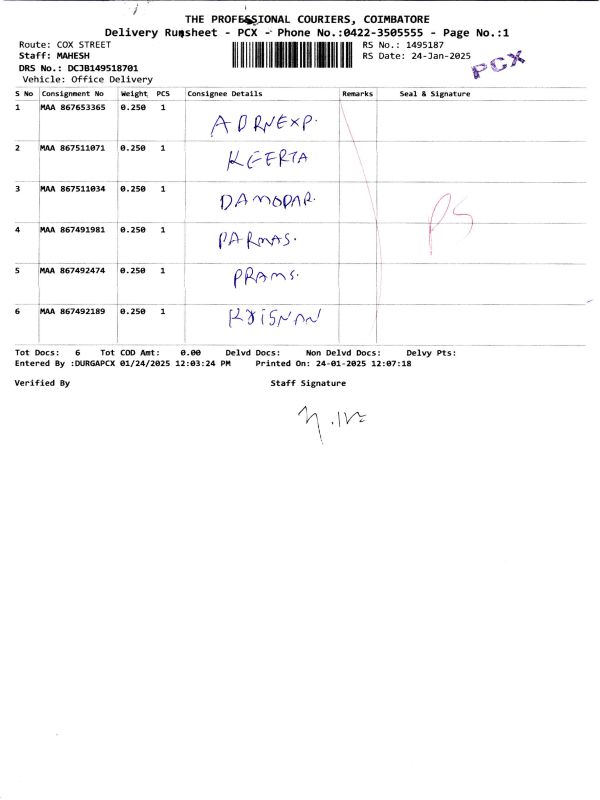 THE PROFESSIONAL COURIERS, COIMBATORE
Delivery Runsheet - PCX - Phone No.:0422-3505555 - Page No.:1
Route: COX STREET RS No.: 1495187
Staff: MAHESH RS Date: 24-Jan-2025
PCX
DRS No.: DCJB149518701
Vehicle: Office Delivery
S No Consignment No Weight PCS Consignee Details Remarks Seal & Signature
1 MAA 867653365 0.250 1 ADRNEXP.
2 MAA 867511071 0.250 1 KEERTA
3 MAA 867511034 0.250 1 DAMODAR.
PS
4 MAA 867491981 0.250 1 PARMAS.
5 MAA 867492474 0.250 1 PRAMS.
6 MAA 867492189 0.250 1
Tot Docs: 6 Tot COD Amt: 0.00 Delvd Docs: Non Delvd Docs: Delvy Pts:
Entered By :DURGAPCX 01/24/2025 12:03:24 PM Printed On: 24-01-2025 12:07:18
Verified By Staff Signature